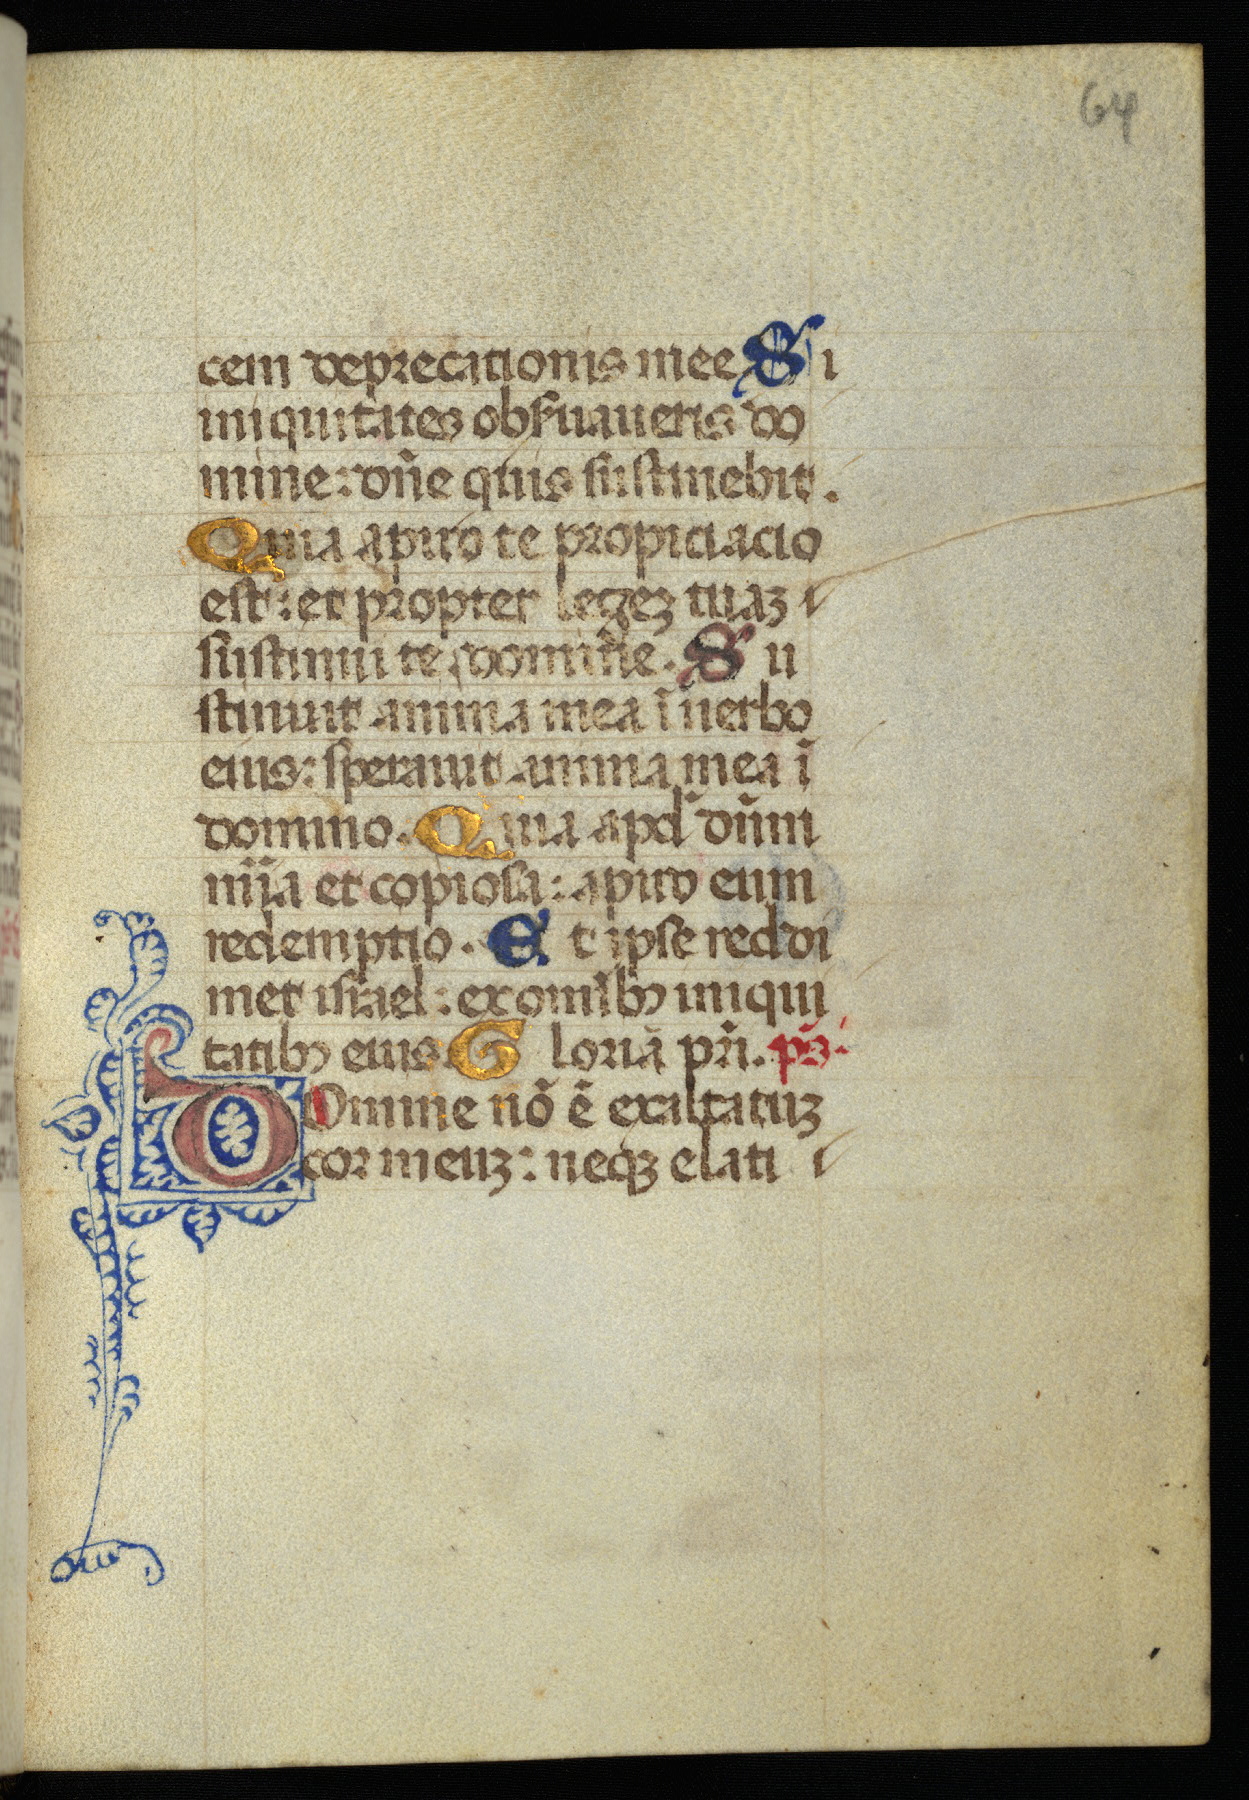 64
cem deprecationis mee Si
iniquitates obſ̄uaueris do
mine: dñe quis ſuſtinebit.
Quia apud te propiciacio
est: et propter legeʒ tuaʒ
ſuſtinui te domine. Su
ſtinuit anima mea ī uerbo
eius: ſperauit anima mea ī
domino. Quia apd̄ dūm
mĩa et copioſa: apud eum
redemptio. Et ipſe redi
met iſrael: ex omĩbꝯ iniqui
tatibꝯ eius Gloriā pr̄i. pſ̄.
DOmine nõ ẽ exaltatuʒ
cor meuʒ: neqʒ elati